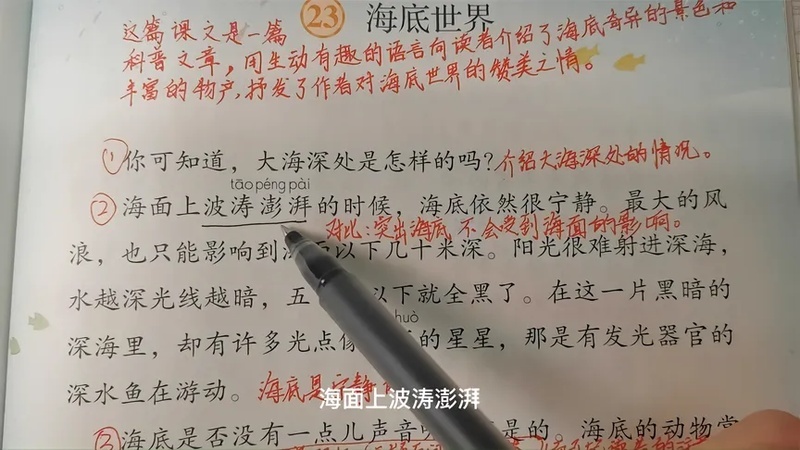 23 海底世界
这篇课文是一篇
科普文章，用生动有趣的语言向读者介绍了海底奇异的景色和
丰富的物产，抒发了作者对海底世界的赞美之情。
①你可知道，大海深处是怎样的吗？介绍大海深处的情况。
tāo péng pài
②海面上波涛澎湃的时候，海底依然很宁静。最大的风
对比：突出海底不会受到海面的影响。
浪，也只能影响到 以下几十米深。阳光很难射进深海，
水越深光线越暗，五 以下就全黑了。在这一片黑暗的
huò
深海里，却有许多光点像 的星星，那是有发光器官的
深水鱼在游动。海底是宁静
海面上波涛澎湃
③海底是否没有一点儿声音 是的，海底的动物常